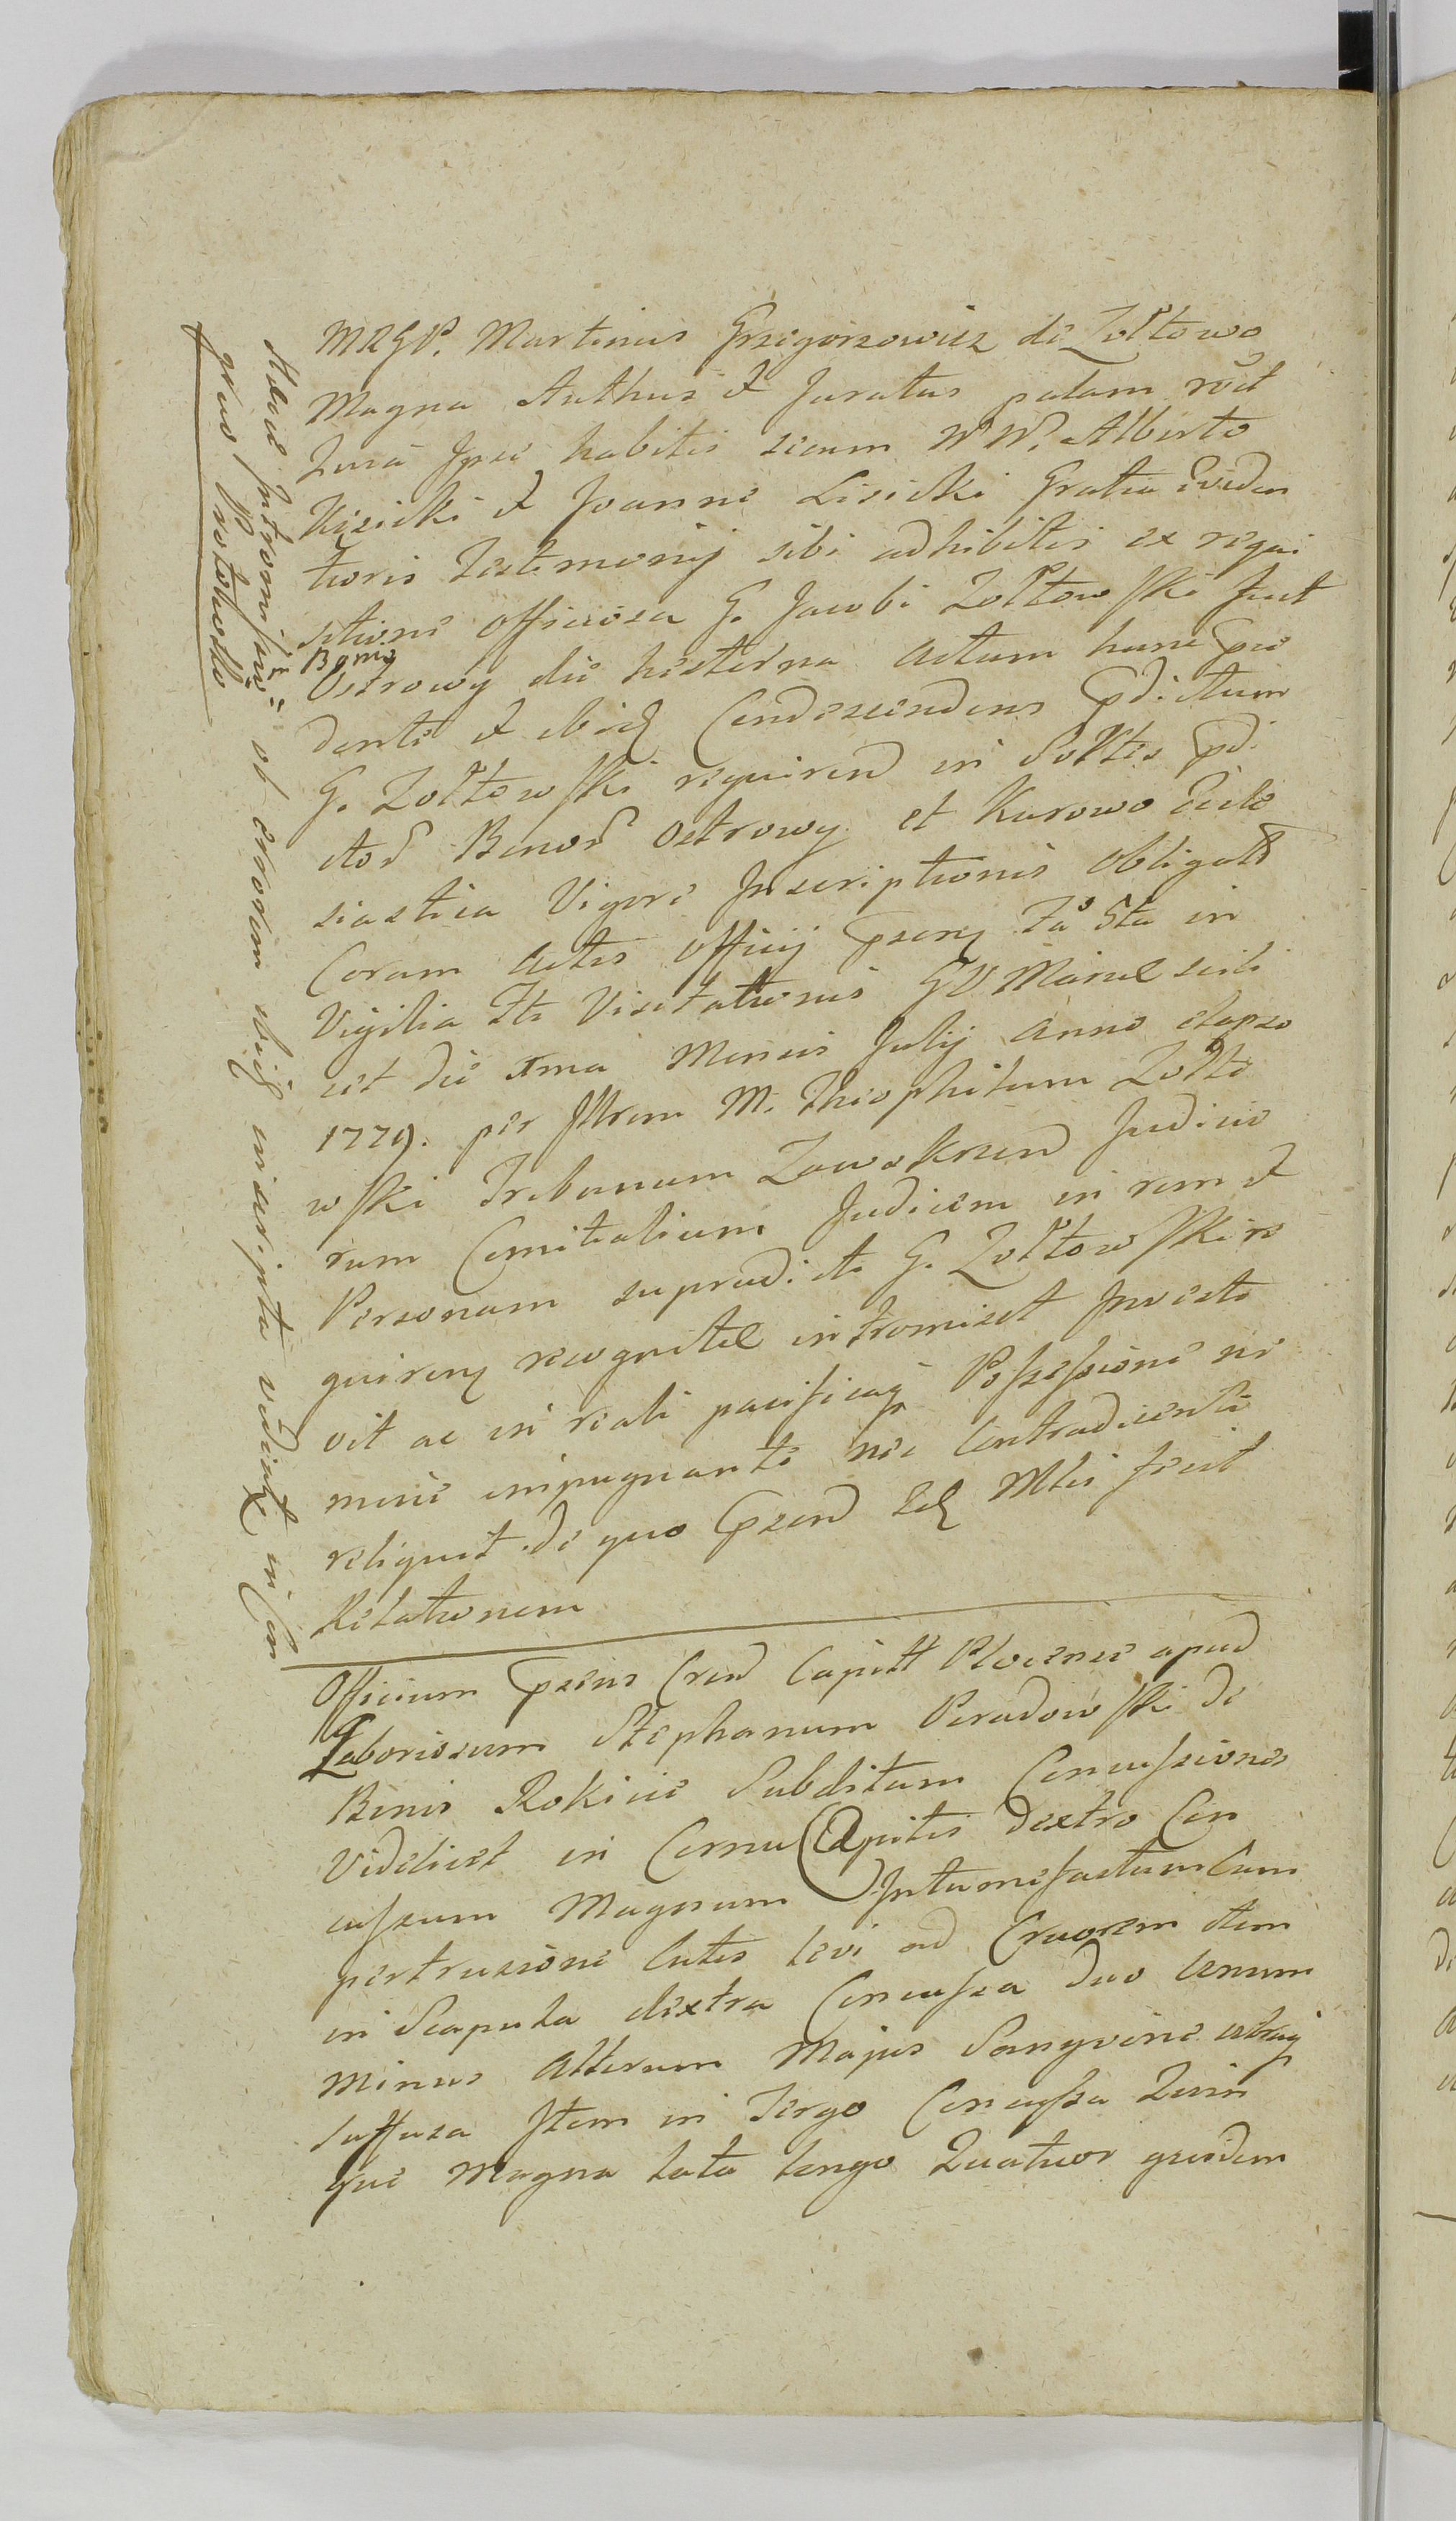 MRGP. Martinus Grzegorzowicz de Zołtowo
Magna Authus & Juratus palam rōvit
Quia Ipse habitis secum NN. Alberto
Kisicki & Joanne Lisicki Gratia Eviden
tioris Testimonij sibi adhibitis ex requi
sitione officiosa G. Jacobi Zołtowski fuit
Bonis
Ostrowy die hesterna actum hunc præ
dente & ibidq Condescendens pdictum
G. Zołtowski requirend in Soltes pdi
ctod Bonod Ostrowy et Kurowo Eccle
siastica Vigore Inscriptionis obligatt
Coram Actis Officij psenq Fa 5ta in
Vigilia Fti Visitationis GV Mariæ scili
cet die 1ma Mensis Julij Anno elapso
1779. per Illrem M. Theophilum Zołto
wski Tribunum Zawskrzend Judicio
rum Comitialium Judicem in rem &
Personam supradicti G. Zołtowski re
quirenq recognitæ intromisit Investi
vit ac in reali pacificaq Possessione ne
mine impugnante nec Contradicente
reliquit de quo psend Sdq Mtti fecit
Relationem
Officium psens Cred Capitt Plocense apud
Laboriosum Stephanum Peradowski de
Bonis Rokicie Subditum Concussiones
Videlicet in Cornu Capitis dextro Con
cussum Magnum Intumefactum Cum
pertrusione Cutis levi ad Cruorem item
in Scapula dextra Concussa duo Unum
minus Alterum Majus Sangvine utraq
suffusa Item in Tergo Concussa Quin
que Magna lata longo Quatuor quidem
Hæc Intromissio ob errorem ibidq inscripta vidiatx in Con
gruo Protocollo